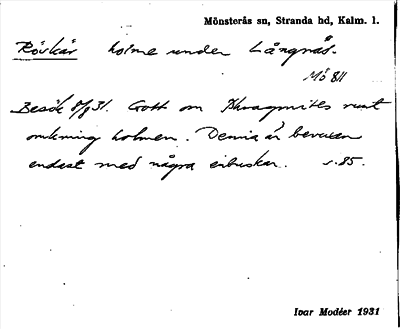 Mönsterås sn, Stranda hd, Kalm. l.
Rövkär holme under Långnäs.
Mö 811
Besök 8/8 31. Gott om Phragmites runt
omkring holmen. Denna är bevuxen
endast med några enbuskar. s. 85.
Ivar Modéer 1931